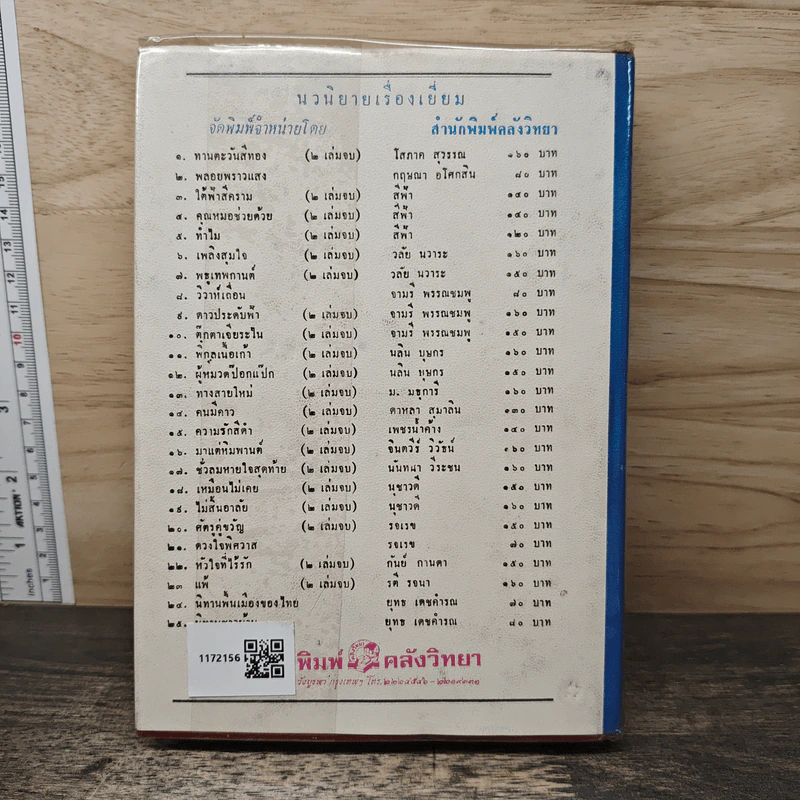 นวนิยายเรื่องเยี่ยม
จัดพิมพ์จำหน่ายโดย สำนักพิมพ์คลังวิทยา
๑. ทานตะวันสีทอง (๒ เล่มจบ) โสภาค สุวรรณ ๑๖๐ บาท
๒. พลอยพราวแสง กฤษณา อโศกสิน ๘๐ บาท
๓. ใต้ฟ้าสีคราม (๒ เล่มจบ) สีฟ้า ๑๔๐ บาท
๔. คุณหมอช่วยด้วย (๒ เล่มจบ) สีฟ้า ๑๔๐ บาท
๕. ทำไม (๒ เล่มจบ) สีฟ้า ๑๒๐ บาท
๖. เพลิงสุมใจ (๒ เล่มจบ) วลัย นวาระ ๑๖๐ บาท
๗. พธูเทพกานต์ (๒ เล่มจบ) วลัย นวาระ ๑๕๐ บาท
๘. วิวาห์เถื่อน จามรี พรรณชมพู ๘๐ บาท
๙. ดาวประดับฟ้า (๒ เล่มจบ) จามรี พรรณชมพู ๑๖๐ บาท
๑๐. ตุ๊กตาเจียระไน (๒ เล่มจบ) จามรี พรรณชมพู ๑๕๐ บาท
๑๑. พิกุลเนื้อเก้า (๒ เล่มจบ) นลิน บุษกร ๑๖๐ บาท
๑๒. ผู้หมวดป๊อกแป๊ก (๒ เล่มจบ) นลิน บุษกร ๑๕๐ บาท
๑๓. ทางสายใหม่ (๒ เล่มจบ) ม. มธุการี ๑๖๐ บาท
๑๔. คนมีคาว (๒ เล่มจบ) ดาหลา สุมาลิน ๑๓๐ บาท
๑๕. ความรักสีดำ (๒ เล่มจบ) เพชรน้ำค้าง ๑๔๐ บาท
๑๖. มาแต่หิมพานต์ (๒ เล่มจบ) จินตวีร์ วิวัธน์ ๑๖๐ บาท
๑๗. ชั่วลมหายใจสุดท้าย (๒ เล่มจบ) นันทนา วีระชน ๑๖๐ บาท
๑๘. เหมือนไม่เคย (๒ เล่มจบ) นุชาวดี ๑๕๐ บาท
๑๙. ไม่สิ้นอาลัย (๒ เล่มจบ) นุชาวดี ๑๖๐ บาท
๒๐. ศัตรูคู่ขวัญ (๒ เล่มจบ) รจเรข ๑๕๐ บาท
๒๑. ดวงใจพิศวาส รจเรข ๗๐ บาท
๒๒. หัวใจที่ไร้รัก (๒ เล่มจบ) กันย์ กานดา ๑๕๐ บาท
๒๓ แพ้ (๒ เล่มจบ) รตี รจนา ๑๖๐ บาท
๒๔. นิทานพื้นเมืองของไทย ยุทธ เดชคำรณ ๗๐ บาท
๒๕. ยุทธ เดชคำรณ ๘๐ บาท
1172156
พิมพ์ คลังวิทยา
กรุงเทพฯ โทร.
ACTION
inches